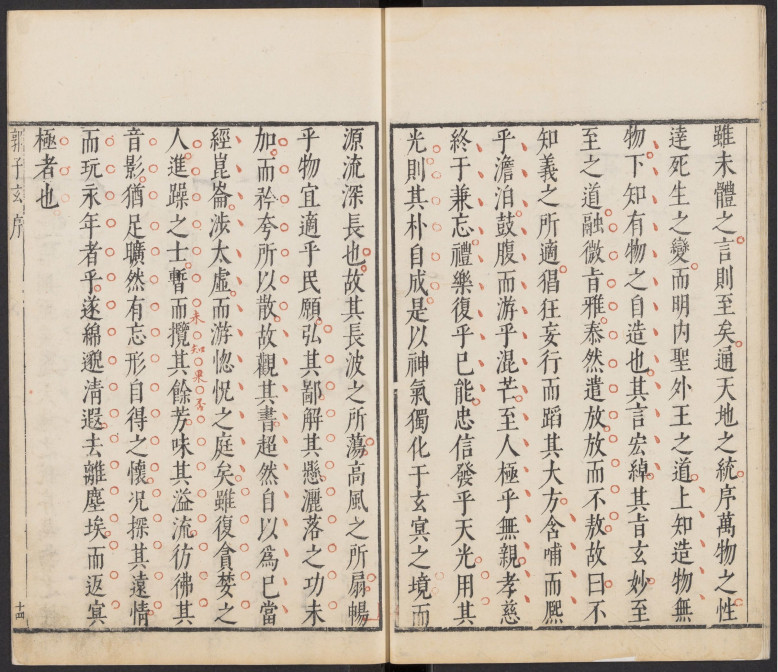 雖未體之言則至矣通天地之統序萬物之性
達死生之變而明内聖外王之道上知造物無
物下知有物之自造也其言宏綽其旨玄妙至
至之道融微旨雅泰然遣放放而不敖故曰不
知義之所適猖狂妄行而蹈其大方含哺而熈
乎澹泊鼓腹而游乎混芒至人極乎無親孝慈
終于兼忘禮樂復乎已能忠信發乎天光用其
光則其朴自成是以神氣獨化于玄㝠之境而
源流深長也故其長波之所蕩高風之所扇暢
乎物宜適乎民願弘其鄙解其懸灑落之功未
加而矜夸所以散故觀其書超然自以爲已當
經崑崙涉太虛而游惚怳之庭矣雖復貪婪之
人進躁之士暫而攬其餘芳味其溢流彷彿其
未知果否
音影猶足曠然有忘形自得之懷況探其遠情
而玩永年者乎遂綿邈清遐去離塵埃而返㝠
極者也
郭子玄序
十四